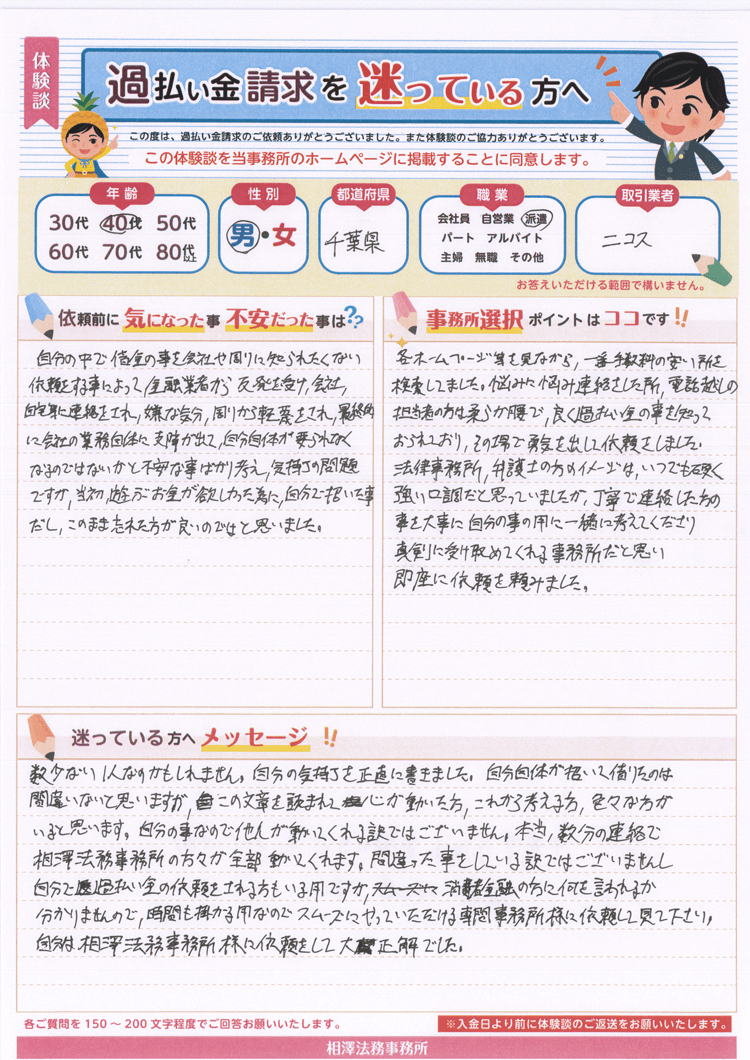 体験談
過払い金請求を迷っている方へ
この度は、過払い金請求のご依頼ありがとうございました。また体験談のご協力ありがとうございます。
この体験談を当事務所のホームページに掲載することに同意します。
年齢
30代 40代 50代
60代 70代 80代以上
性別
男・女
都道府県
千葉県
職業
会社員 自営業 派遣
パート アルバイト
主婦 無職 その他
取引業者
ニコス
お答えいただける範囲で構いません。
依頼前に気になった事 不安だった事は??
自分の中で借金の事を会社や周りに知られたくない
依頼をする事によって、金融業者から反発を受け、会社、
自宅に連絡をされ、嫌な気分、周りから軽蔑をされ、最終的
に会社の業務自体に支障が出て、自分自体が要られなく
なるのではないかと不安な事ばかり考え、気持ちの問題
ですが、当初、遊ぶお金が欲しかった為に、自分で招いた事
だし、このまま忘れた方が良いのではと思いました。
事務所選択ポイントはココです!!
各ホームページ等を見ながら、一番手数料の安い所を
検索してました。悩みに悩み連絡をした所、電話越しの
担当者の方は柔らか腰で、良く過払い金の事を知って
おられており、その場で勇気を出して依頼をしました。
法律事務所、弁護士の方のイメージは、いつでも硬く
強い口調だと思っていましたが、丁寧で連絡した方の
事を大事に自分の事の用に一緒に考えてくださり
真剣に受け取めてくれる事務所だと思い
即座に依頼を頼みました。
迷っている方へメッセージ!!
数少ない1人なのかもしれません。自分の気持ちを正直に書きました。自分自体が招いて借りたのは
間違いないと思いますが、この文章を読まれて心が動いた方、これから考える方、色々な方が
いると思います。自分の事なので他人が動いてくれる訳ではございません。本当、数分の連絡で
相澤法務事務所の方々が全部動いてくれます。間違った事をしている訳ではございませんし
自分で過払い金の依頼をされる方もいる用ですが、消費者金融の方に何を言われるか
分かりませんので、時間も掛かる用なのでスムーズにやっていただける専門事務所様に依頼して見て下さい。
自分は相澤法務事務所様に依頼をして大正解でした。
各ご質問を150〜200文字程度でご回答お願いいたします。
※入金日より前に体験談のご返送をお願いいたします。
相澤法務事務所